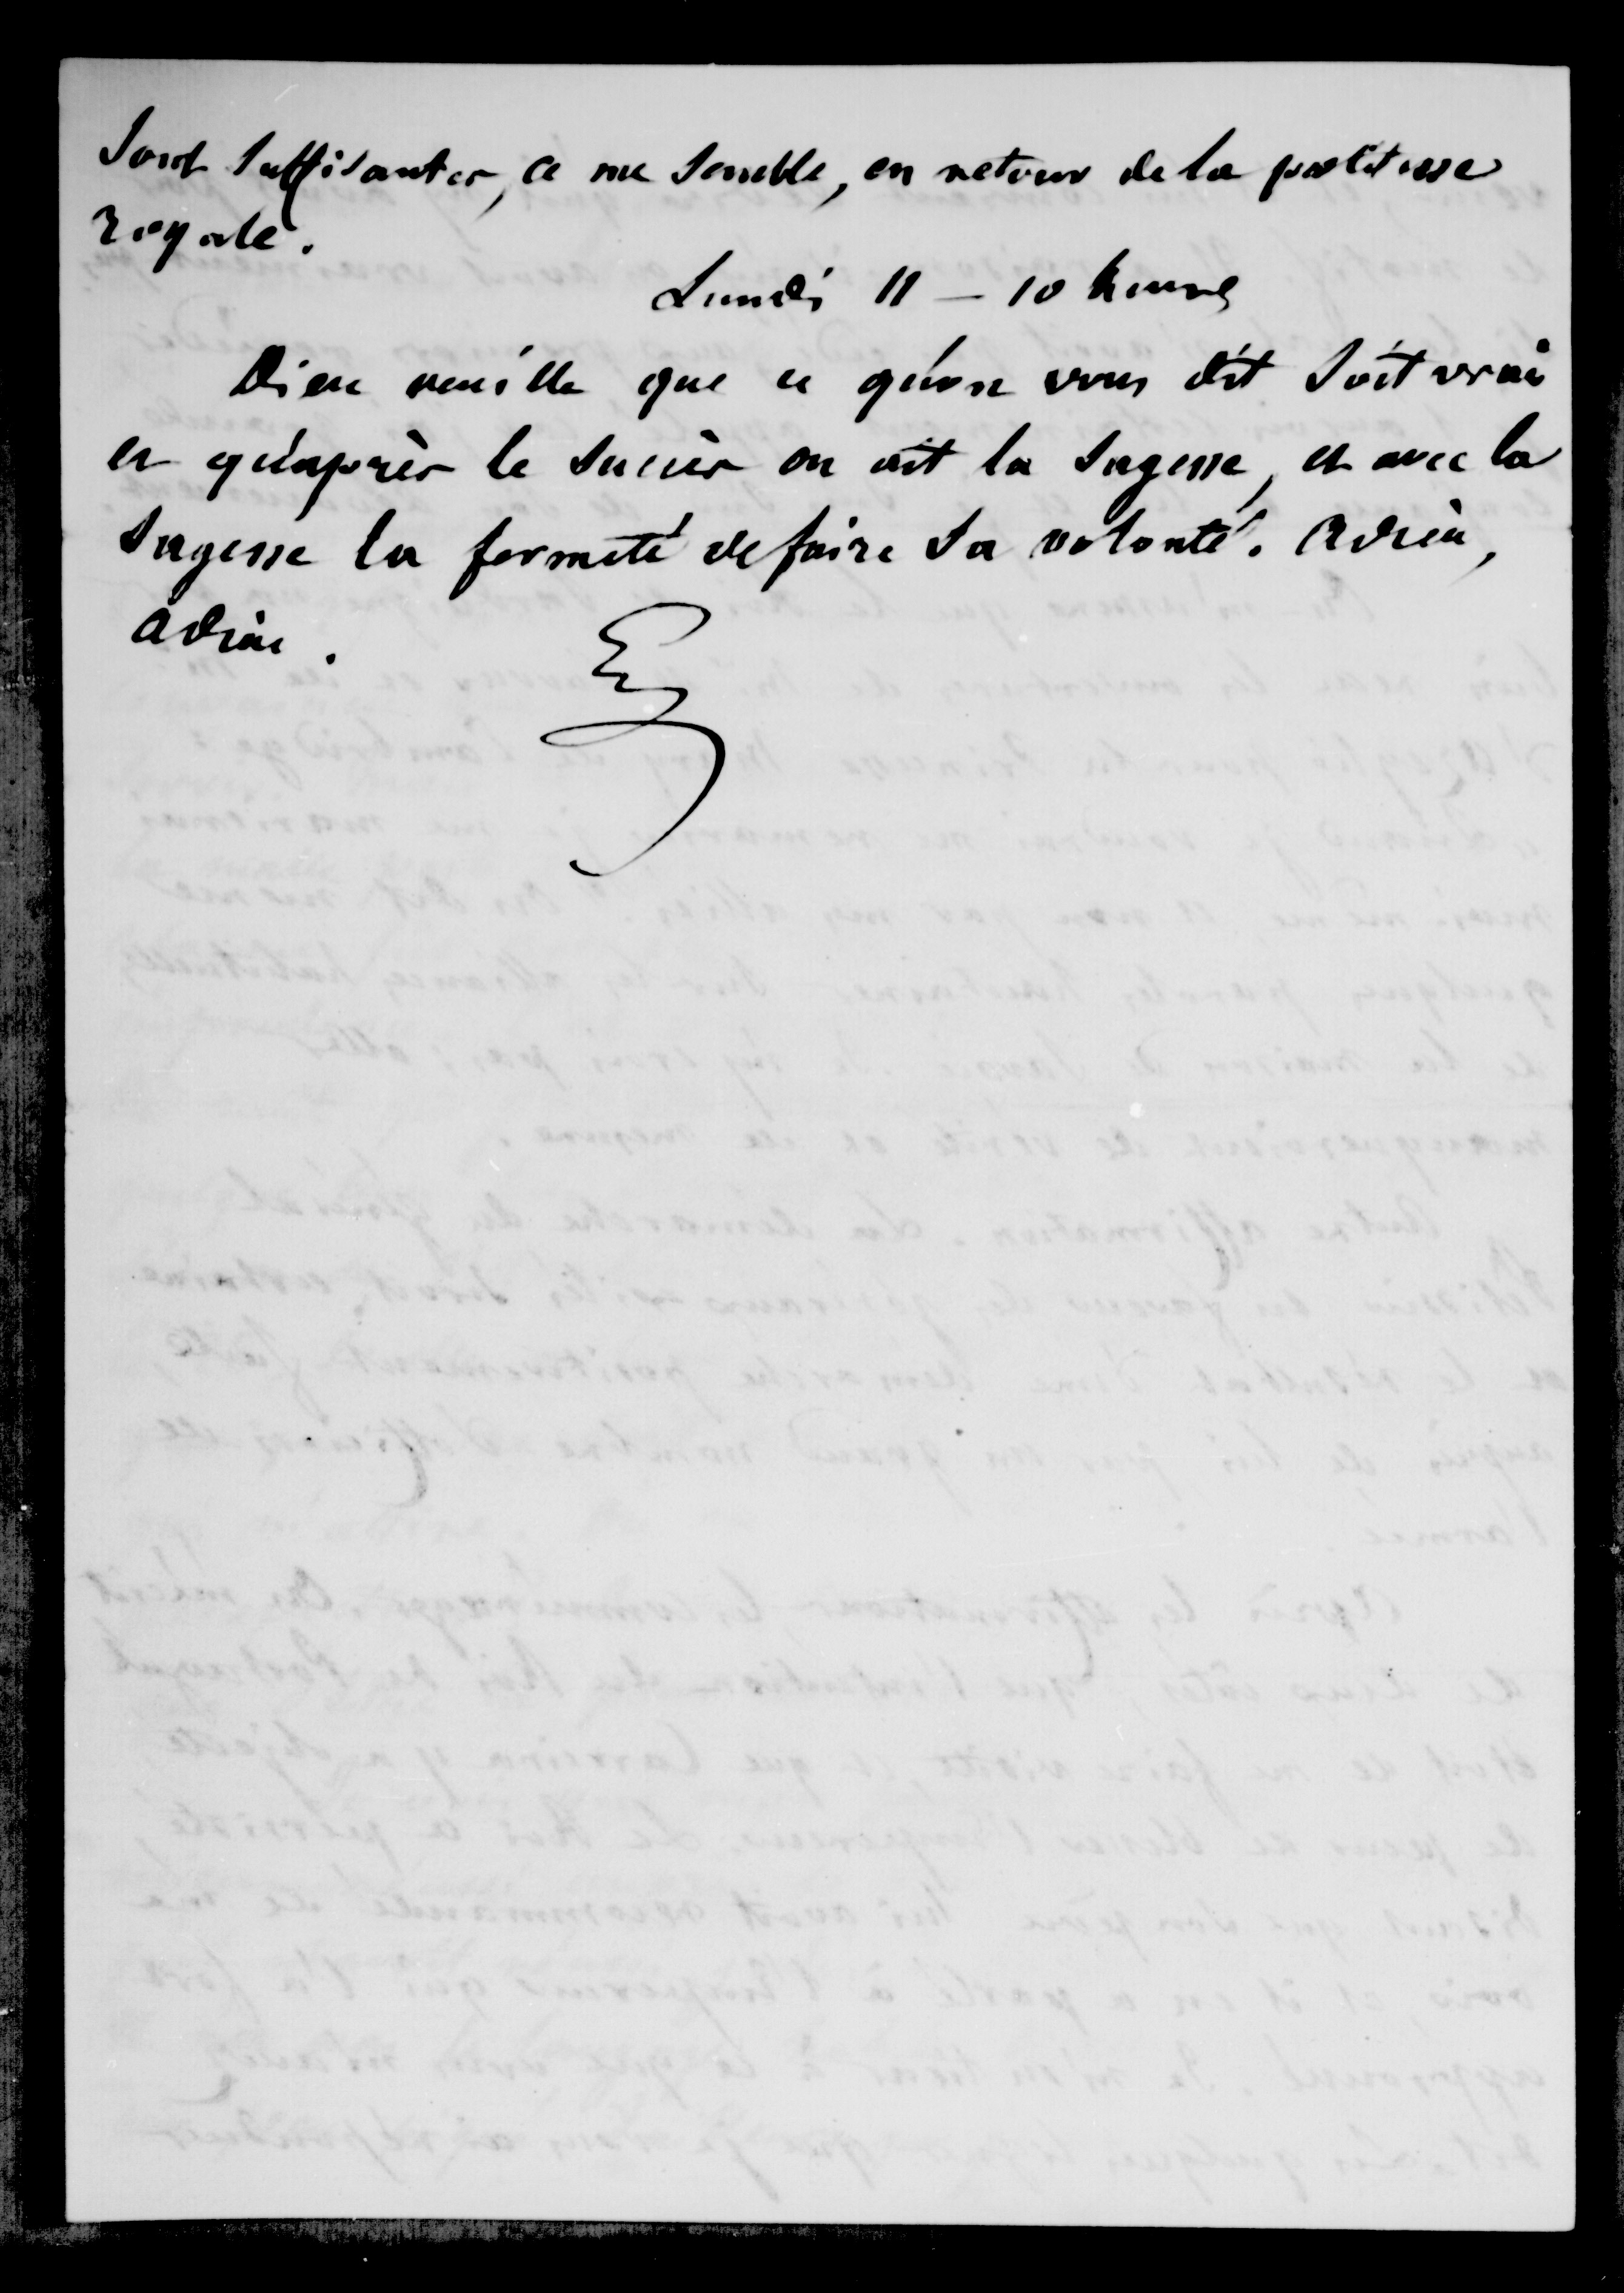 sont suffisantes, ce me semble, en retour de la politesse
royale.
Lundi 11 - 10 heures
Dieu veuille que ce qu'on vous dit soit vrai
et qu'après le succès on ait la sagesse, et avec la
sagesse la fermeté de faire sa volonté. Adieu,
Adieu.